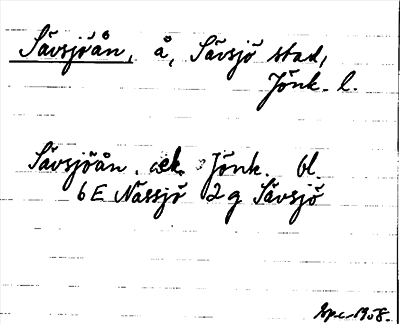 Sävsjöån, å, Sävsjö stad,
Jönk. l.
Sävsjöån. ek. Jönk. bl.
6E Nässjö 2g Sävsjö